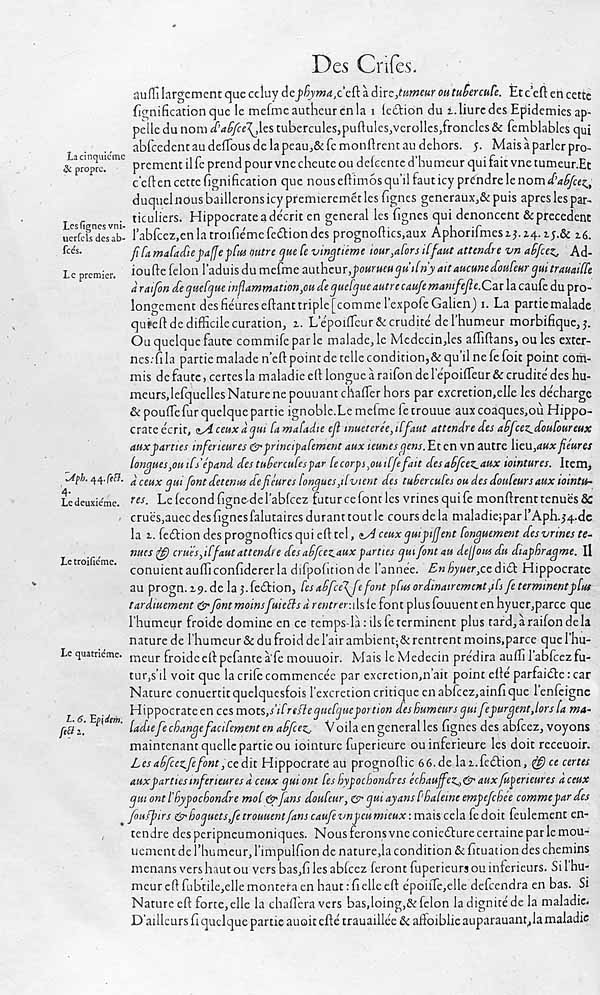 Des Crises.
aussi largement que celuy de phyma, c'est à dire, tumeur ou tubercuse. Et c'est en cette
signification que le mesme autheur en la 1 section du 2. liure des Epidemies ap-
pelle du nom d'abscez, les tubercules, pustules, verolles, froncles & semblables qui
abscedent au dessous de la peau, & se monstrent au dehors. 5. Mais à parler pro-
La cinquiéme
& propre.
prement il se prend pour vne cheute ou descente d'humeur qui fait vne tumeur. Et
c'est en cette signification que nous estimós qu'il faut icy prendre le nom d'abscez,
duquel nous baillerons icy premieremét les signes generaux, & puis apres les par-
ticuliers. Hippocrate a décrit en general les signes qui denoncent & precedent
Les signes vni-
uersels des ab-
scés.
l'abscez, en la troisiéme section des prognostics, aux Aphorismes 23. 24. 25. & 26.
si la maladie passe plus outre que le vingtième iour, alors il faut attendre vn abscez. Ad-
Le premier.
iouste selon l'aduis du mesme autheur, pourueu qu'il n'y ait aucune douleur qui trauaille
à raison de quelque inflammation, ou de quelque autre cause manifeste. Car la cause du pro-
longement des fiéures estant triple [comme l'expose Galien] 1. La partie malade
qui est de difficile curation, 2. L'époisseur & crudité de l'humeur morbifique, 3.
Ou quelque faute commise par le malade, le Medecin, les assistans, ou les exter-
nes: si la partie malade n'est point de telle condition, & qu'il ne se soit point com-
mis de faute, certes la maladie est longue à raison de l'époisseur & crudité des hu-
meurs, lesquelles Nature ne pouuant chasser hors par excretion, elle les décharge
& pousse sur quelque partie ignoble. Le mesme se trouue aux coaques, où Hippo-
crate écrit, A ceux à qui la maladie est inueterée, il faut attendre des abscez douloureux
aux parties inferieures & principalement aux ieunes gens. Et en vn autre lieu, aux fiéures
longues, ou il s'épand des tubercules par le corps, ou il se fait des abscez aux iointures. Item,
Aph. 44. sect.
4.
à ceux qui sont detenus de fiéures longues, il vient des tubercules ou des douleurs aux iointu-
Le deuxiéme.
res. Le second signe de l'abscez futur ce sont les vrines qui se monstrent tenuës &
cruës, auec des signes salutaires durant tout le cours de la maladie; par l'Aph. 34. de
la 2. section des prognostics qui est tel, A ceux qui pissent longuement des vrines te-
nues & cruës, il faut attendre des abscez aux parties qui sont au dessous du diaphragme. Il
Le troisiéme.
conuient aussi considerer la disposition de l'année. En hyuer, ce dict Hippocrate
au progn. 29. de la 3. section, les abscez se font plus ordinairement, ils se terminent plus
tardiuement & sont moins suiects à rentrer: ils se font plus souuent en hyuer, parce que
l'humeur froide domine en ce temps-là: ils se terminent plus tard, à raison de la
nature de l'humeur & du froid de l'air ambient; & rentrent moins, parce que l'hu-
Le quatriéme.
meur froide est pesante à se mouuoir. Mais le Medecin prédira aussi l'abscez fu-
tur, s'il voit que la crise commencée par excretion, n'ait point esté parfaicte: car
Nature conuertit quelquesfois l'excretion critique en abscez, ainsi que l'enseigne
L. 6. Epidem.
sect 2.
Hippocrate en ces mots, s'il reste quelque portion des humeurs qui se purgent, lors la ma-
ladie se change facilement en abscez. Voila en general les signes des abscez, voyons
maintenant quelle partie ou iointure superieure ou inferieure les doit receuoir.
Les abscez se font, ce dit Hippocrate au prognostic 66. de la 2. section, & ce certes
aux parties inferieures à ceux qui ont les hypochondres échauffez, & aux superieures à ceux
qui ont l'hypochondre mol & sans douleur, & qui ayans l'haleine empeschée comme par des
souspirs & hoquets, se trouuent sans cause vn peu mieux: mais cela se doit seulement en-
tendre des peripneumoniques. Nous ferons vne coniecture certaine par le mou-
uement de l'humeur, l'impulsion de nature, la condition & situation des chemins
menans vers haut ou vers bas, si les abscez seront superieurs ou inferieurs. Si l'hu-
meur est subtile, elle montera en haut: si elle est époisse, elle descendra en bas. Si
Nature est forte, elle la chassera vers bas, loing, & selon la dignité de la maladie.
D'ailleurs si quelque partie auoit esté trauaillée & affoiblie auparauant, la maladie